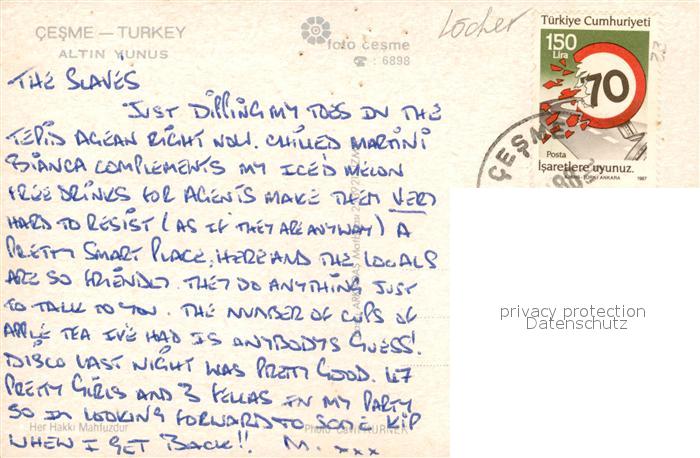 ÇEŞME — TURKEY
ALTIN YUNUS
foto çeşme
☎ : 6898
Löcher
Türkiye Cumhuriyeti
150
Lira
70
Posta
İşaretlere uyunuz.
1987
ÇEŞME
THE SLAVES
JUST DIPPING MY TOES IN THE
TEPID AGEAN RIGHT NOW. CHILLED MARTINI
BIANCA COMPLEMENTS MY ICED MELON
FREE DRINKS FOR AGENTS MAKE THEM VERY
HARD TO RESIST (AS IF THEY ARE ANYWAY) A
PRETTY SMART PLACE, HERE AND THE LOCALS
ARE SO FRIENDLY. THEY DO ANYTHING JUST
TO TALK TO YOU. THE NUMBER OF CUPS OF
APPLE TEA I'VE HAD IS ANYBODYS GUESS!
DISCO LAST NIGHT WAS PRETTY GOOD. 47
PRETTY GIRLS AND 3 FELLAS IN MY PARTY
SO IM LOOKING FORWARD TO SOME KIP
WHEN I GET BACK!! M. xxx
Her Hakkı Mahfuzdur
Photo
privacy protection
Datenschutz